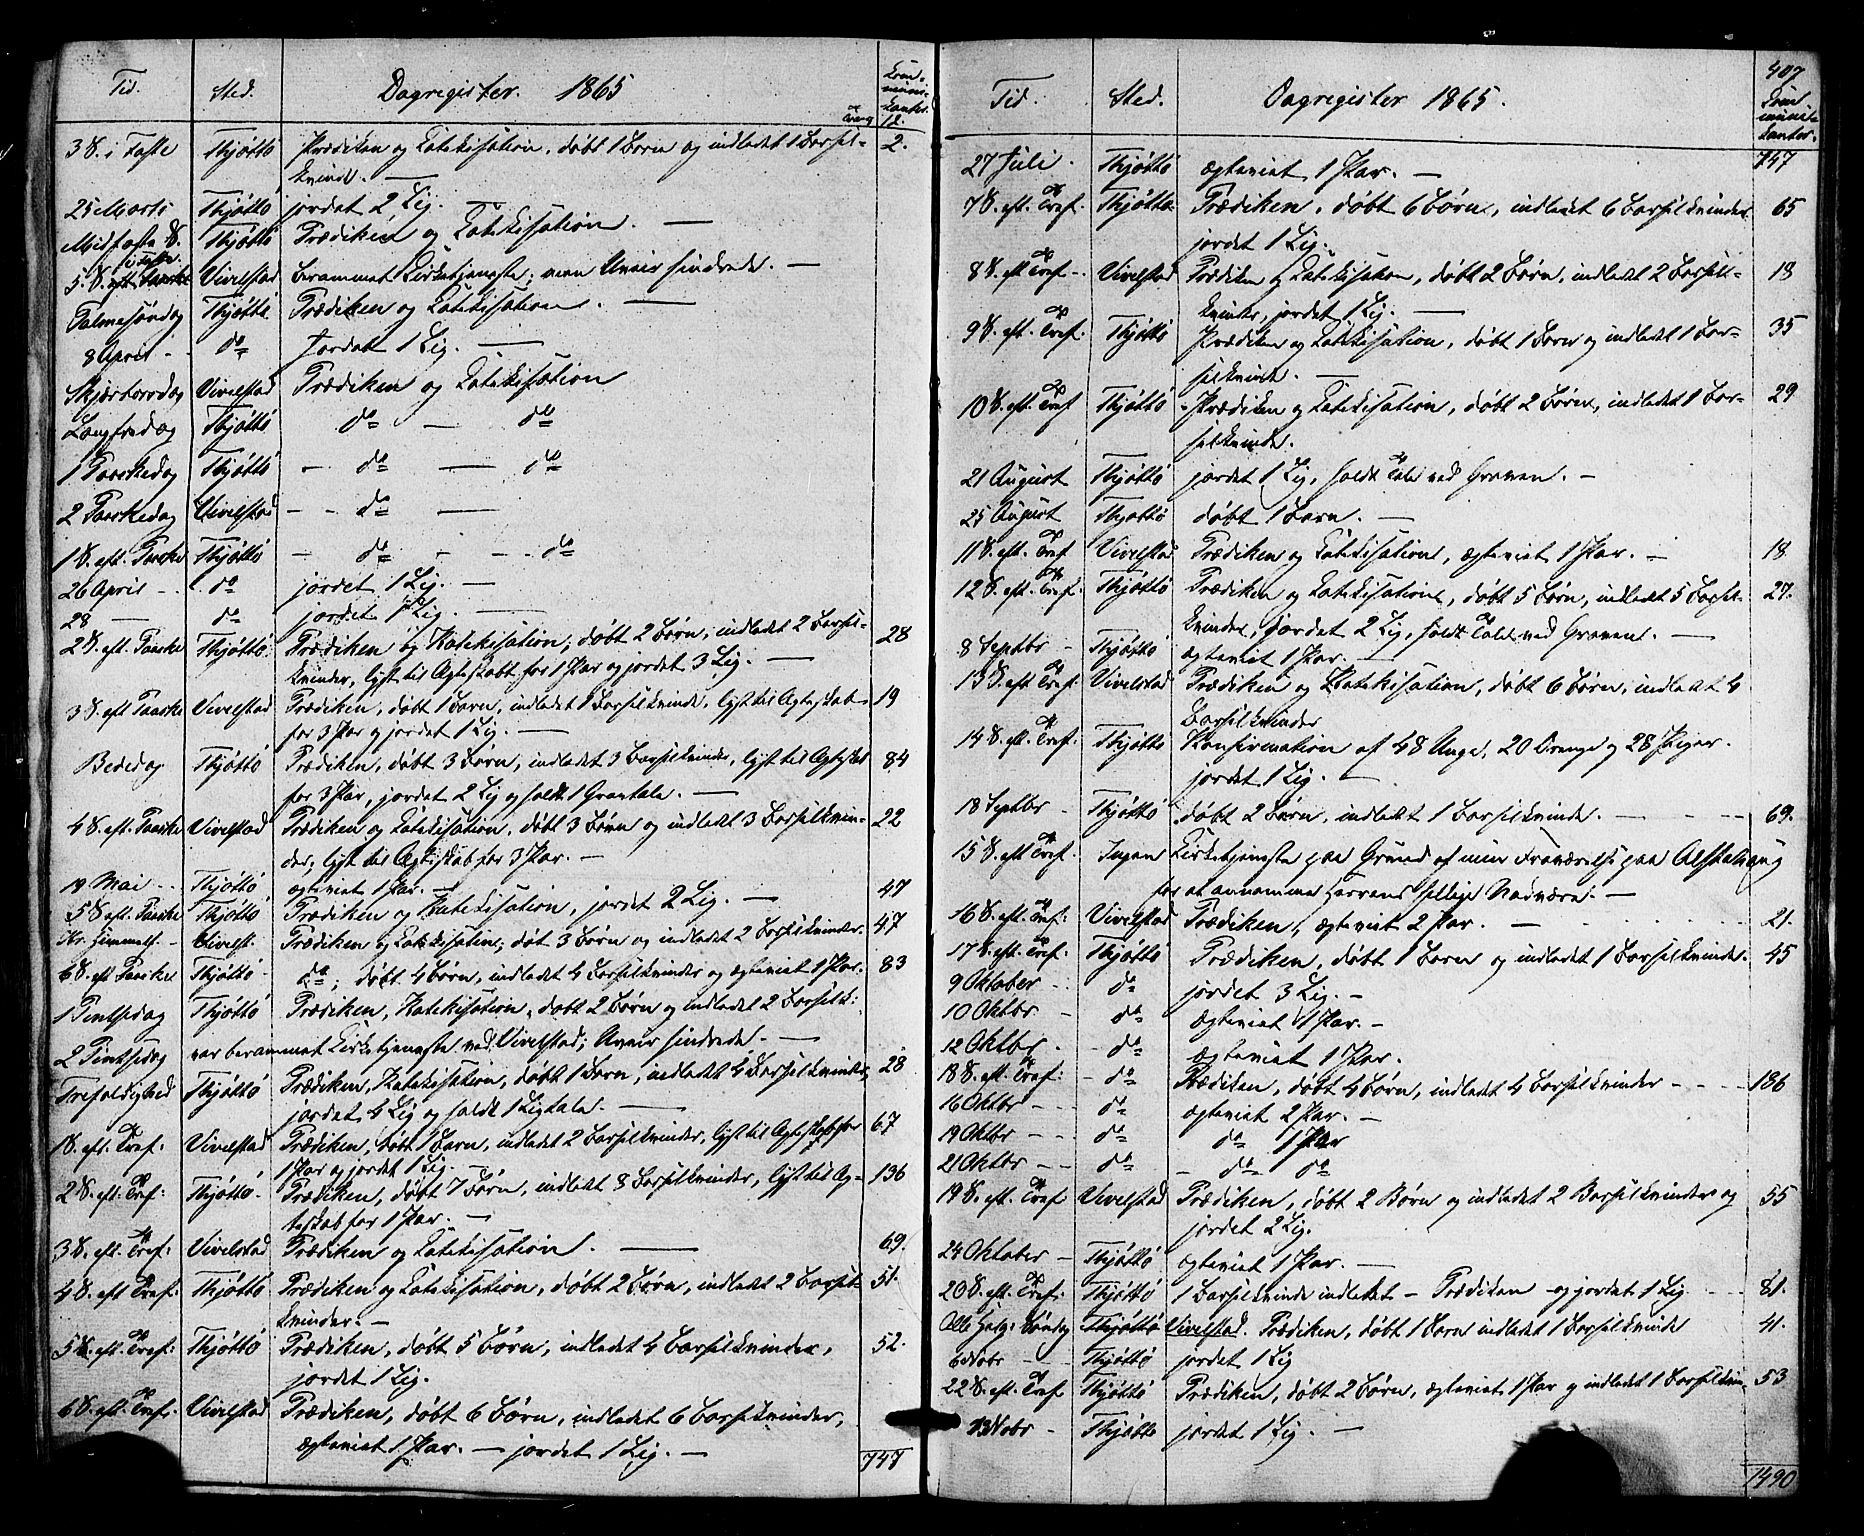 Tid. Sted. Dagregister. 1865 Kom-
muni-
kanter.
12.
3 S. i Faste Thjøttø Prædiken og Katekisation, døbt 1 Barn og indledet 1 Barsel- 2.
kvinde. —
25 Marts Thjøttø jordet 2 Lig. —
Midfaste S. Thjøttø Prædiken og Katekisation. —
5 S. i Faste Vivelstad berammet Kirketjeneste; men Uveir hindrede. —
Palmesøndag Thjøttø Prædiken og Katekisation. —
8 April - do Jordet 1 Lig. —
Skjærtorsdag Vivelstad Prædiken og Katekisation
Langfredag Thjøttø do — do
1 Paaskedag Thjøttø — do — do
2 Paaskedag Vivelstad - - do —
1 S. eft. Paaske Thjøttø — do - - - do
26 April - - do jordet 1 Lig. —
28 — do jordet 1 Lig. —
2 S. eft. Paaske Thjøttø Prædiken og Katekisation; døbt 2 Børn, indledet 2 Barsel- 28
kvinder, lyst til Ægteskab for 1 Par og jordet 3 Lig. —
3 S. eft Paaske Vivelstad Prædiken, døbt 1 Barn, indledet 1 Barselkvinde, lyst til Ægteskab 19
for 3 Par og jordet 1 Lig. —
Bededag Thjøttø Prædiken, døbt 3 Børn, indledet 3 Barselkvinder, lyst til Ægteskab 84
for 3 Par, jordet 2 Lig og holdt 1 Gravtale. —
4 S. eft. Paaske Vivelstad Prædiken og Katekisation, døbt 3 Børn og indledet 3 Barselkvin- 22
der, lyst til Ægteskab for 3 Par. —
19 Mai - - Thjøttø ægteviet 1 Par. —
5 S. eft. Paaske Thjøttø Prædiken og Katekisation, jordet 2 Lig. — 47
Kr. Himmelf. - Vivelst. Prædiken og Katekisation; døbt 3 Børn og indledet 2 Barselkvinder. 47
6 S. eft Paaske Thjøttø - do; døbt 4 Børn, indledet 4 Barselkvinder og ægteviet 1 Par. 83
1 Pintsedag Thjøttø Prædiken, Katekisation, døbt 2 Børn og indledet 2 Barselk:
2 Pintsedag var berammet Kirketjeneste ved Vivelstad; Uveir hindrede. —
Trefoldighed Thjøttø Prædiken, Katekisation, døbt 1 Barn, indledet 4 Barselkvinder, 28
jordet 4 Lig og holdt 1 Ligtale. —
1 S. eft. Tref: Vivelstad Prædiken, døbt 1 Barn, indledet 2 Barselkvinder, lyst til Ægteskab for 67
1 Par og jordet 1 Lig.
2 S. eft. Tref: Thjøttø - Prædiken, døbt 7 Børn, indledet 8 Barselkvinder, lyst til Æg- 136
teskab for 1 Par. —
3 S. eft. Tref: Vivelstad Prædiken og Katekisation. — 69.
4 S. eft Tref: Thjøttø Prædiken og Katekisation, døbt 2 Børn, indledet 2 Barsel- 51.
kvinder. —
5 S. eft. Tref: Thjøttø Prædiken, døbt 5 Børn, indledet 4 Barselkvinder, 52.
jordet 1 Lig.
6 S. eft. Tref: Vivelstad Prædiken, døbt 6 Børn, indledet 6 Barselkvinder,
ægteviet 1 Par. — jordet 1 Lig. — 747
407
Tid. Sted. Dagregister 1865. Kom-
muni-
kanter.
747
27 Juli. Thjøttø ægteviet 1 Par. —
7 S. eft. Tref. Thjøttø Prædiken, døbt 6 Børn, indledet 6 Barselkvinder 65
jordet 1 Lig.
8 S. eft Tref - Vivelstad Prædiken og Katekisation, døbt 2 Børn, indledet 2 Barsel- 18
kvinder, jordet 1 Lig. —
9 S. eft. Tref: Thjøttø Prædiken og Katekisation, døbt 1 Barn og indledet 1 Bar- 35
selkvinde. —
10 S. eft. Tref Thjøttø - Prædiken og Katekisation, døbt 2 Børn, indledet 1 Bar- 29
selkvinde.
21 August Thjøttø jordet 1 Lig, holdt Tale ved Graven. —
25 August Thjøttø døbt 1 Barn. —
11 S. eft. Tref Vivelstad Prædiken og Katekisation, ægteviet 1 Par. — 18
12 S. eft. Tref: Thjøttø Prædiken og Katekisation, døbt 5 Børn, indledet 5 Barsel- 27.
kvinder, jordet 2 Lig, holdt Tale ved Graven. —
8 Septbr - Thjøttø ægteviet 1 Par. —
13 S. eft Tref: Vivelstad Prædiken og Katekisation, døbt 6 Børn, indledet 4
Barselkvinder
14 S. eft. Tref: Thjøttø Konfirmation af 48 Unge, 20 Drenge og 28 Piger.
jordet 1 Lig. —
18 Septbr - Thjøttø døbt 2 Børn, indledet 1 Barselkvinde. — - - - 69.
15 S. eft Tref. Ingen Kirketjeneste paa Grund af min Fraværelse paa Alstahaug
for at annamme Herrens hellige Nadvere. —
16 S. eft. Tref: Vivelstad Prædiken, ægteviet 2 Par. — 21.
17 S. eft. Tref: Thjøttø Prædiken, døbt 1 Barn og indledet 1 Barselkvinde. 45
9 Oktober - - do jordet 3 Lig. —
10 Oktbr - do ægteviet 1 Par. —
12 Oktbr. - do ægteviet 1 Par.
18 S. eft. Tref: - do Prædiken, døbt 4 Børn, indledet 4 Barselkvinder - - - - 186
16 Oktbr - - - do ægteviet 2 Par. —
19 Oktbr - - - do do 1 Par
21 Oktbr - - do - do do
19 S. eft. Tref Vivelstad Prædiken, døbt 2 Børn og indledet 2 Barselkvinder og 55
jordet 2 Lig.
24 Oktober - Thjøttø ægteviet 1 Par. —
20 S. eft. Tref: Thjøttø 1 Barselkvinde indledet — Prædiken — og jordet 1 Lig - - - 81.
Alle Helg: Søndag Thjøttø Vivelstad. Prædiken, døbt 1 Barn indledet 1 Barselkvinde 41.
6 Novbr - - - Thjøttø jordet 1 Lig
22 S. eft. Tref Thjøttø Prædiken, døbt 2 Børn, ægteviet 1 Par og indledet 1 Barselkvin- 53
13 Novbr - Thjøttø jordet 1 Lig. —
1490